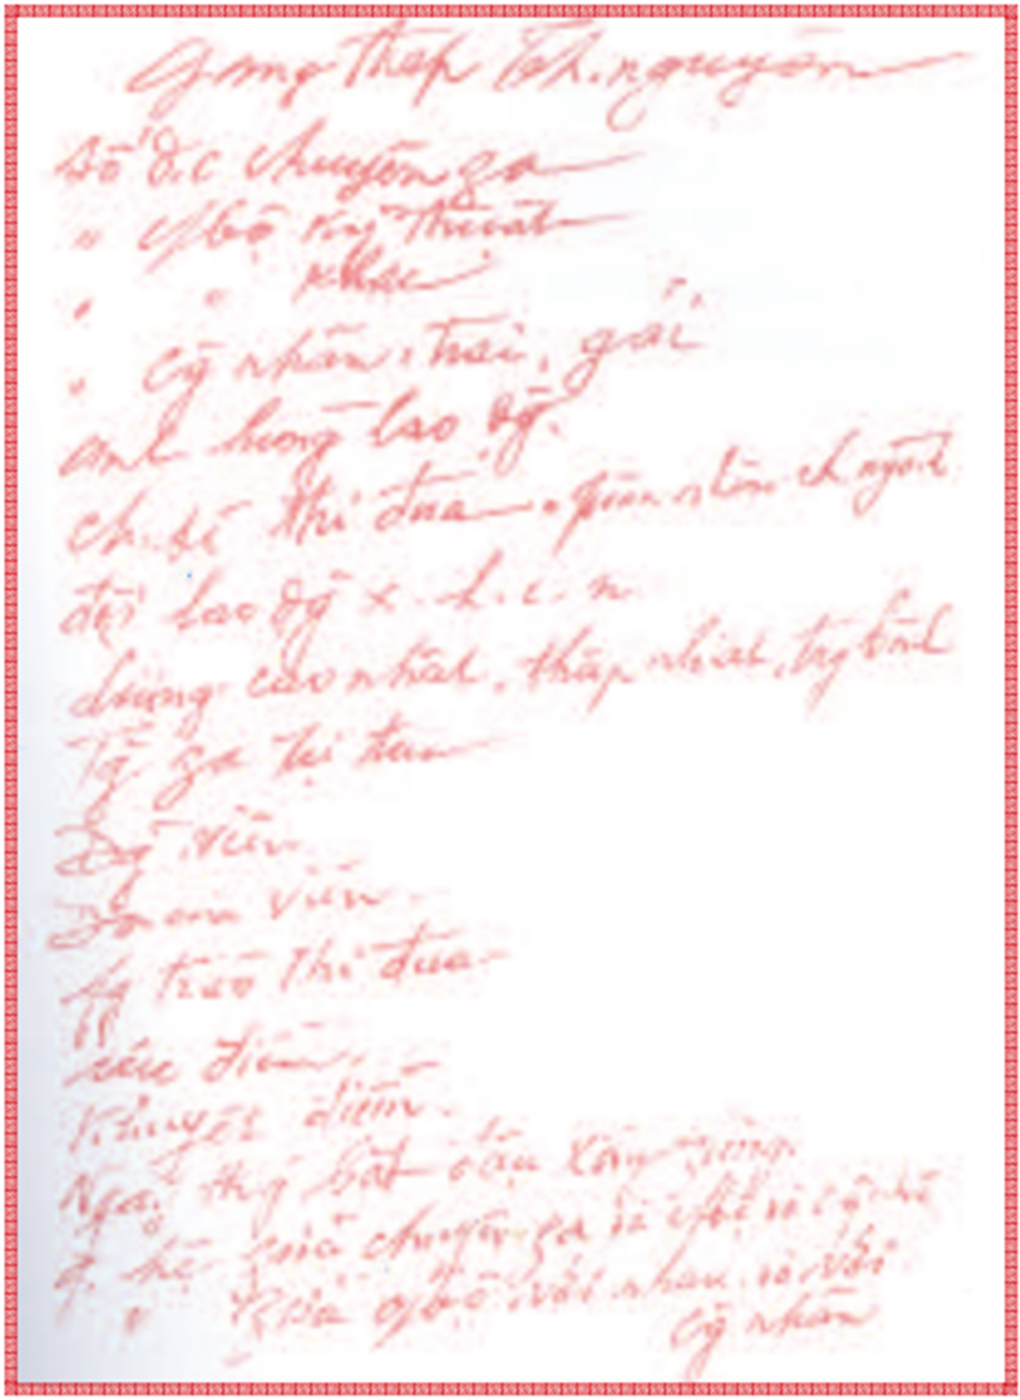 Gang thép Th. nguyên
Số đ.c chuyên gia
" c/bộ kỹ thuật
" " khác
" Cg nhân, trai, gái
anh hùng lao đg.
Ch. sĩ thi đua
đội lao đg x. h. c. n.
lương cao nhất, thấp nhất, trg bình
Tg gia tại trên
Đg viên
Đoàn viên
Pg trào thi đua
Ưu điểm
Khuyết điểm
Ngày thg bắt đầu xây dựng
Q. hệ giữa chuyên gia và c/bộ và cg nh
" giữa c/bộ với nhau và với
cg nhân